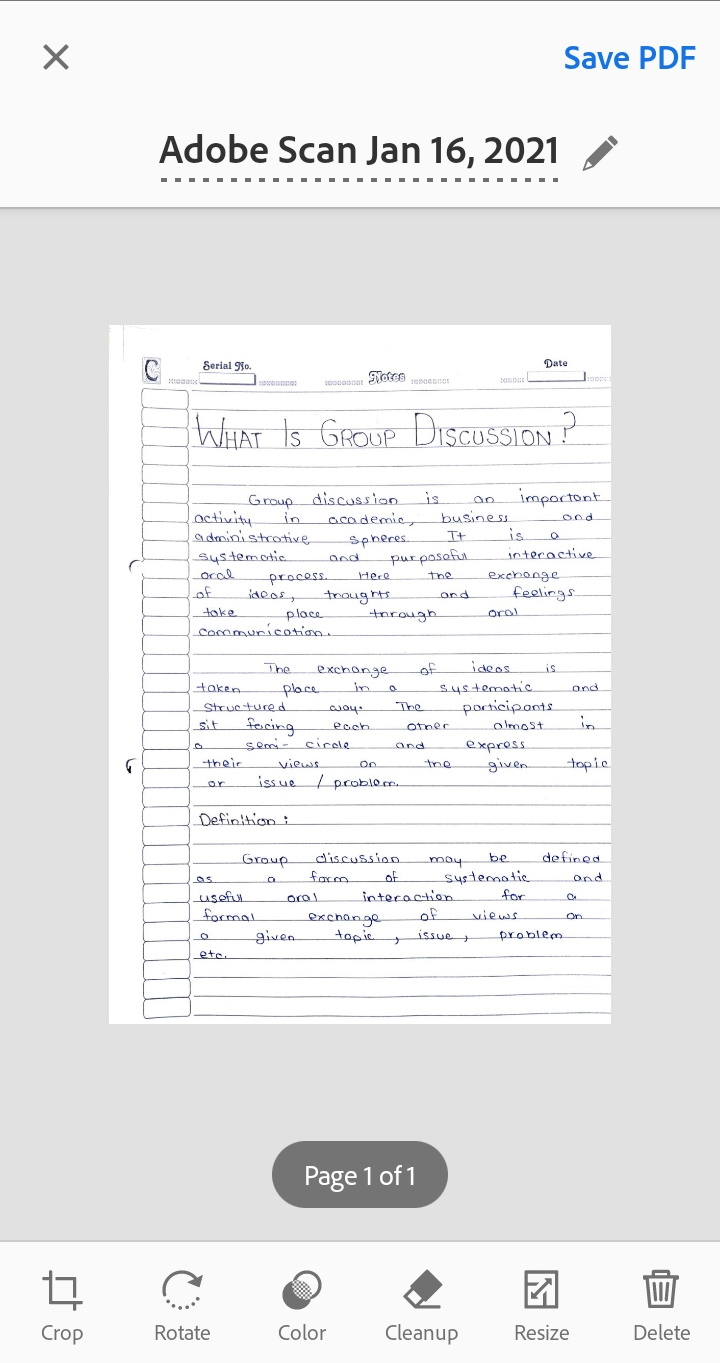 Save PDF
Adobe Scan Jan 16, 2021
C
Serial No.
Notes
Date
WHAT IS GROUP DISCUSSION?
Group discussion is an important
activity in academic, business and
administrative spheres. It is a
systematic and purposeful interactive
oral process. Here the exchange
of ideas, thoughts and feelings
take place through oral
communication.
The exchange of ideas is
taken place in a systematic and
structured way. The participants
sit facing each other almost in
a semi-circle and express
their views on the given topic
or issue / problem.
Definition :
Group discussion may be defined
as a form of systematic and
useful oral interaction for a
formal exchange of views on
a given topic, issue, problem
etc.
Page 1 of 1
Crop Rotate Color Cleanup Resize Delete